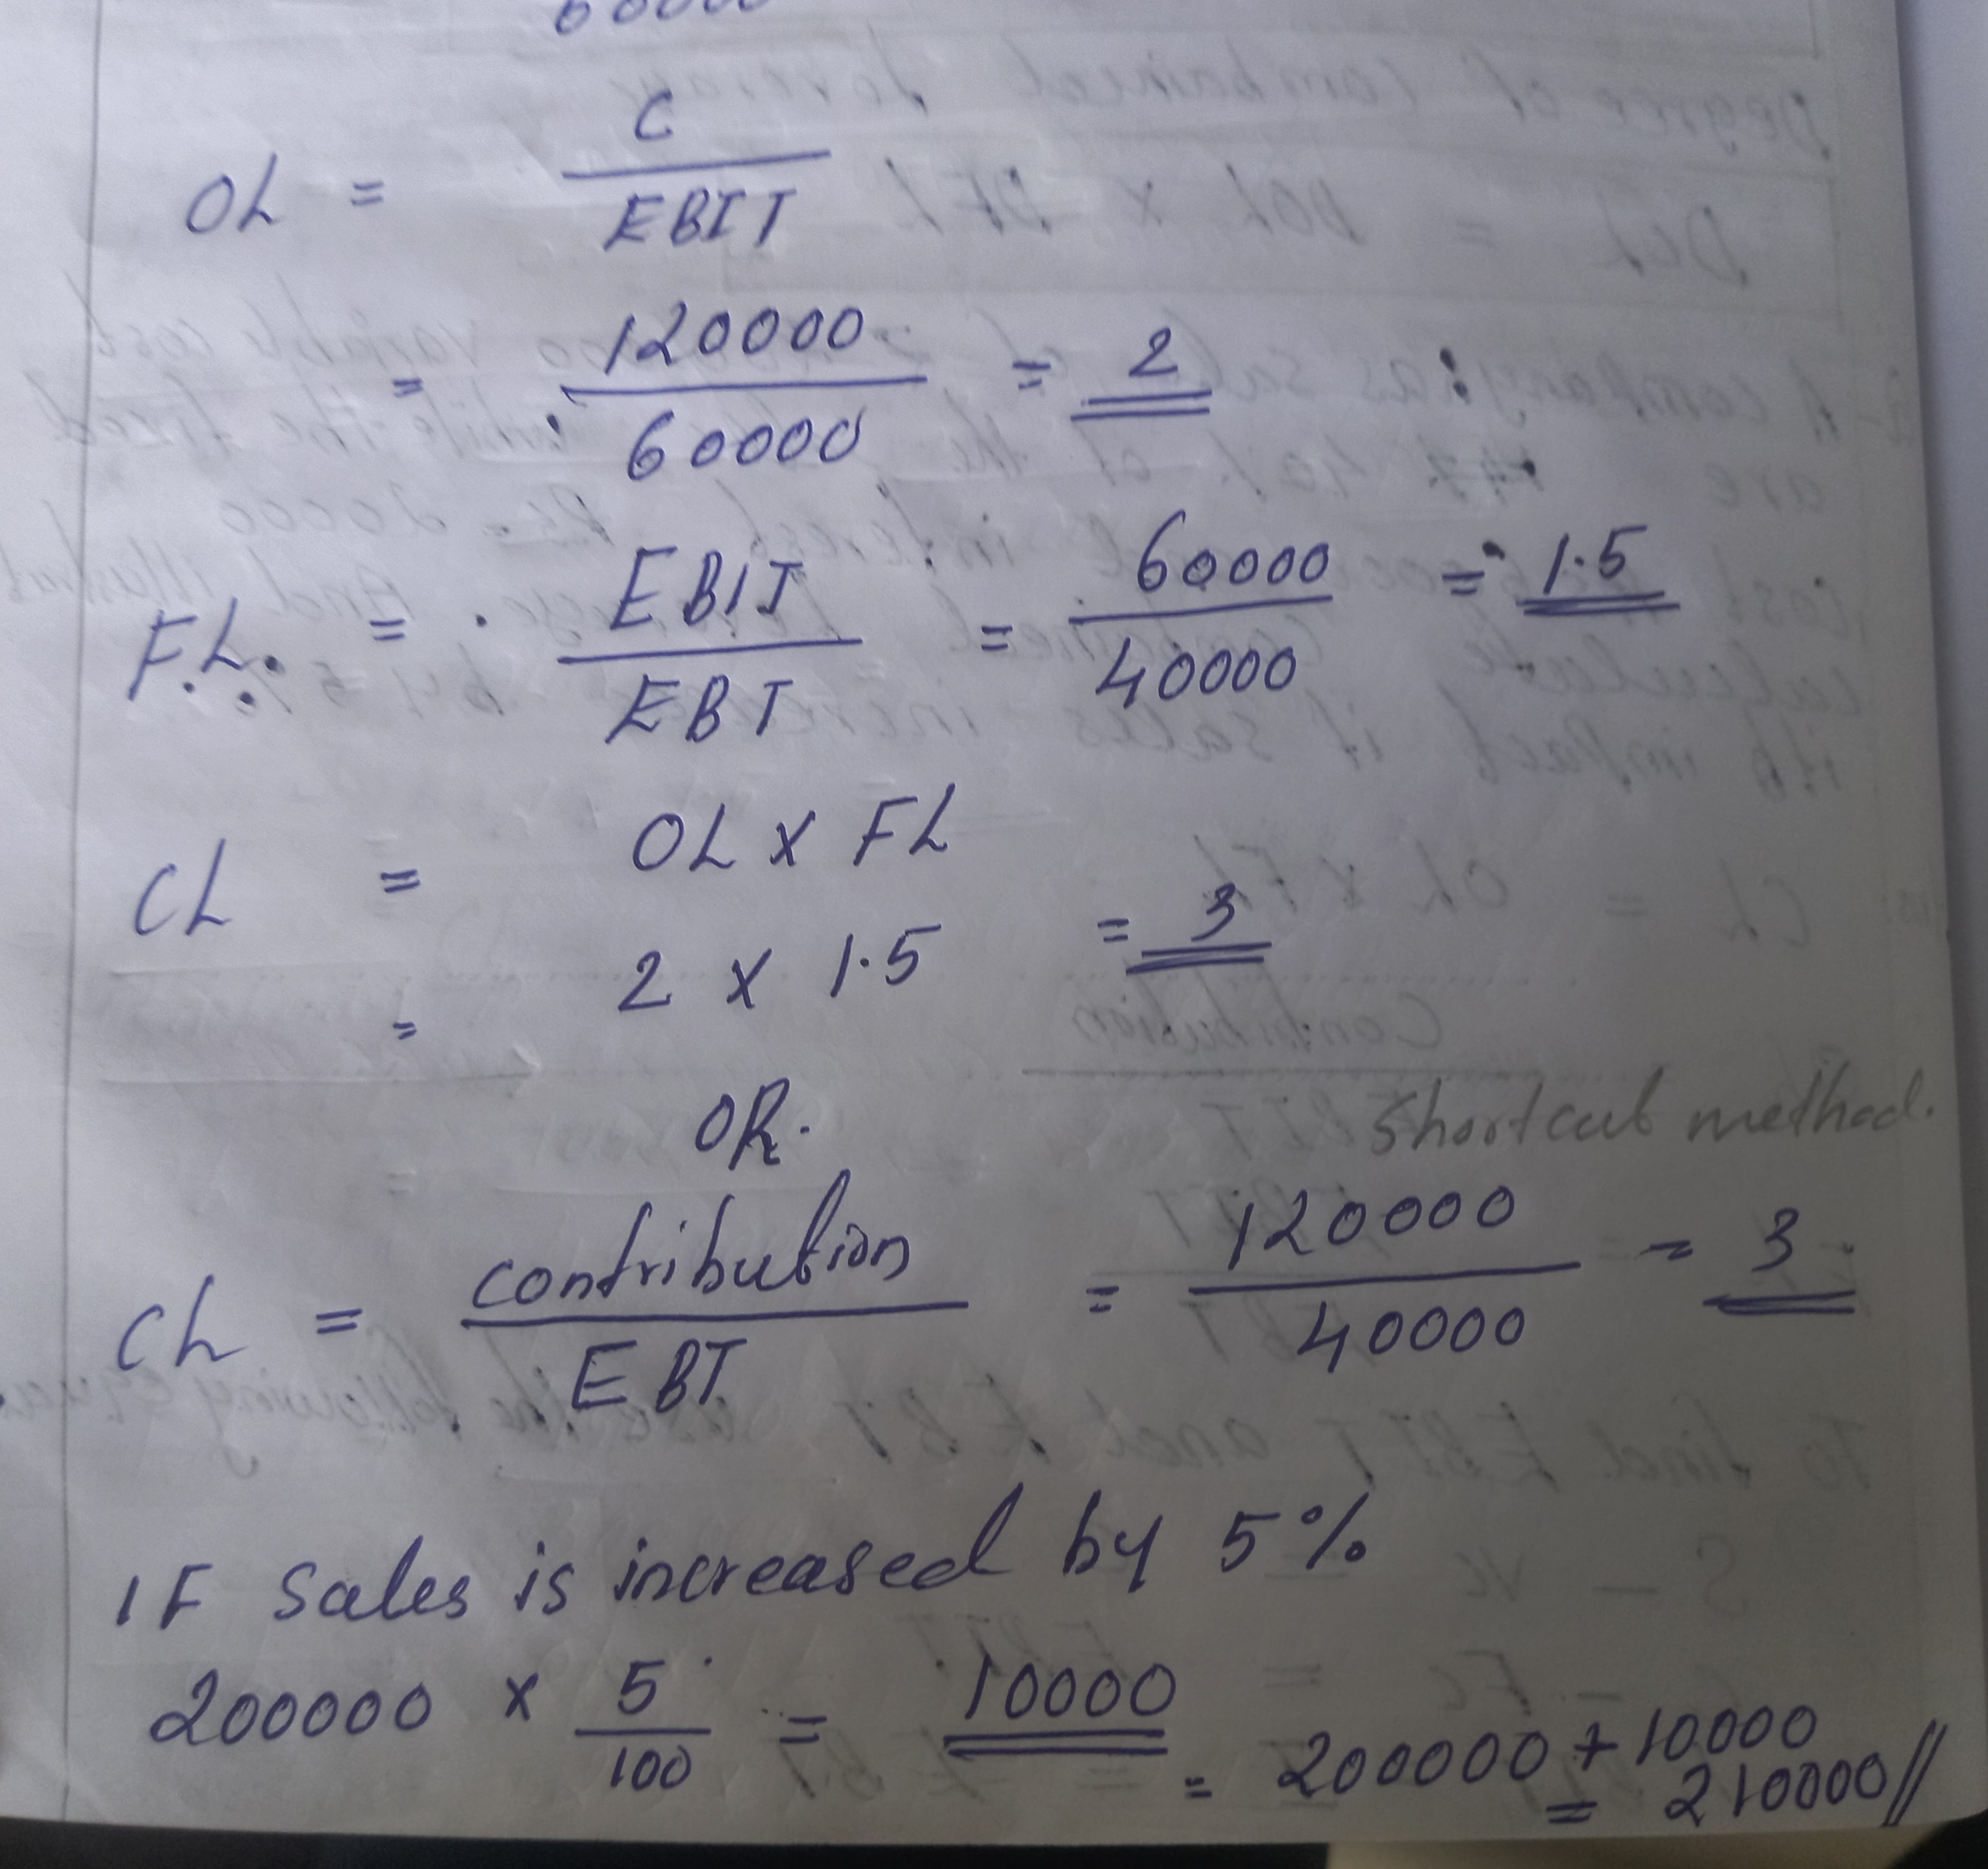 60000
OL = C / EBIT
= 120000 / 60000 = 2
F.L. = EBIT / EBT = 60000 / 40000 = 1.5
CL = OL x FL
= 2 x 1.5 = 3
OR.
Shortcut method.
CL = contribution / EBT = 120000 / 40000 = 3
IF Sales is increased by 5%
200000 x 5 / 100 = 10000
= 200000 + 10000
= 210000 //